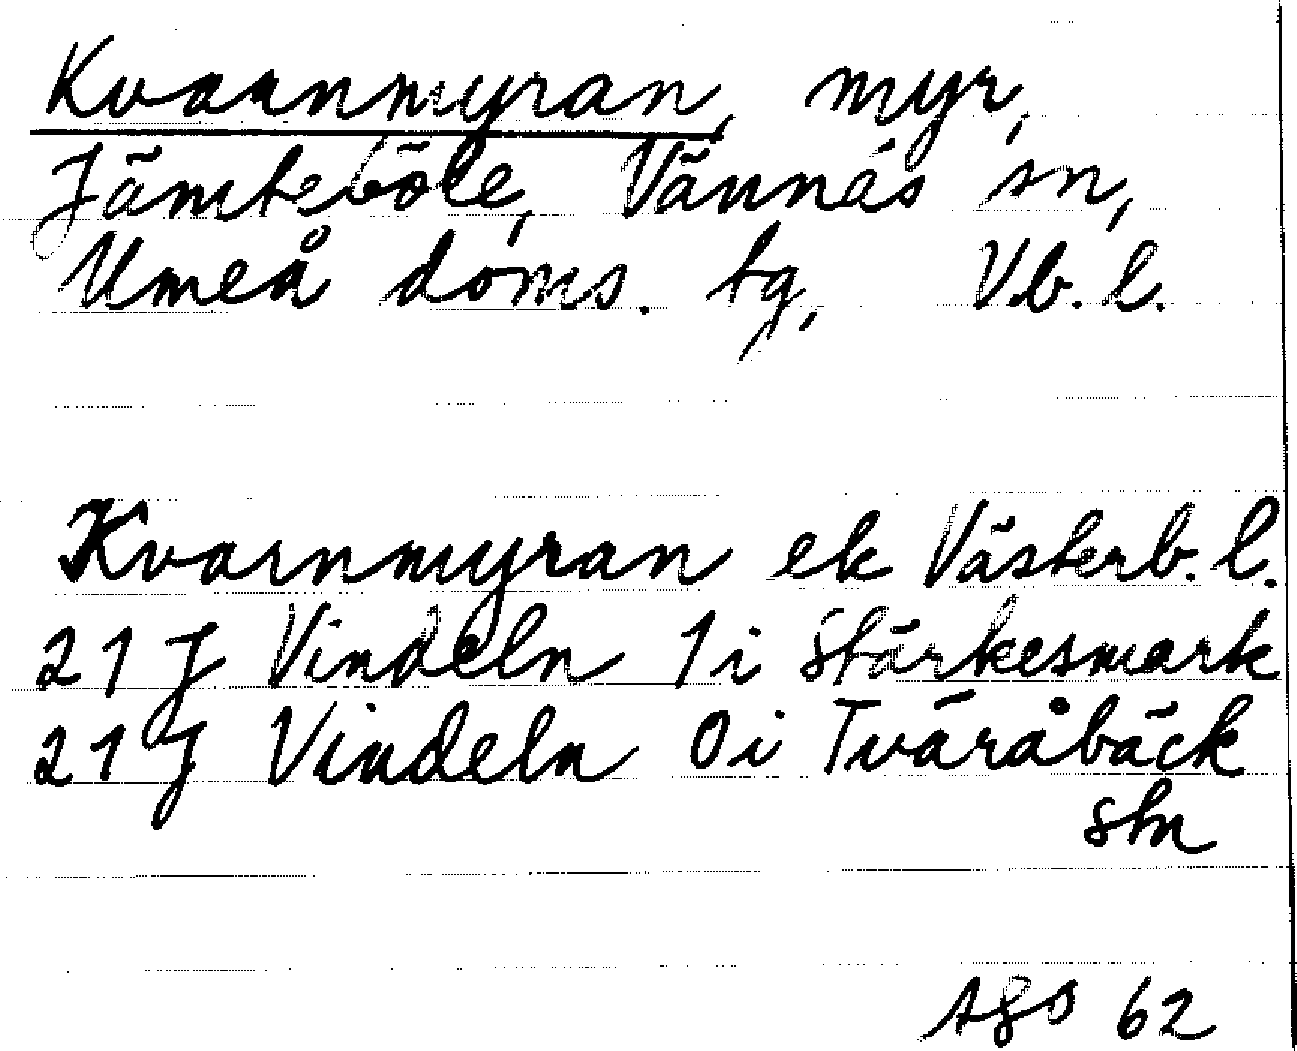 Kvarnmyran, myr,
Jämteböle, Vännäs sn,
Umeå doms. tg, Vb. l.
Kvarnmyran ek Västerb. l.
21 J Vindeln 1i Stärkesmark
21 J Vindeln 0i Tväråbäck
stn
62